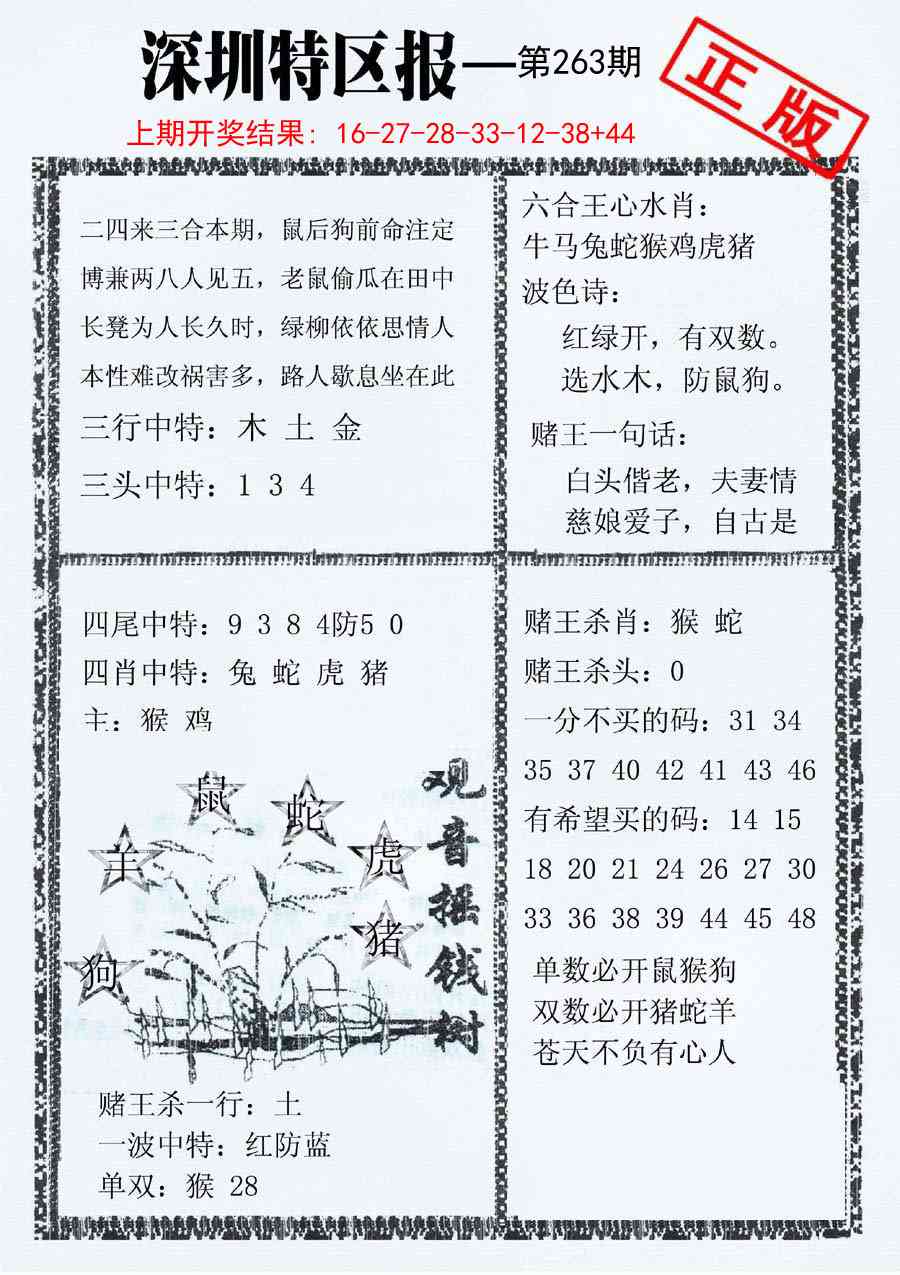 深圳特区报—第263期
正版
上期开奖结果: 16-27-28-33-12-38+44
二四来三合本期，鼠后狗前命注定
博兼两八人见五，老鼠偷瓜在田中
长凳为人长久时，绿柳依依思情人
本性难改祸害多，路人歇息坐在此
三行中特：木 土 金
三头中特：1 3 4
六合王心水肖：
牛马兔蛇猴鸡虎猪
波色诗：
红绿开，有双数。
选水木，防鼠狗。
赌王一句话：
白头偕老，夫妻情
慈娘爱子，自古是
四尾中特：9 3 8 4防5 0
四肖中特：兔 蛇 虎 猪
主：猴 鸡
鼠
蛇
羊
虎
猪
狗
观音摇钱树
赌王杀一行：土
一波中特：红防蓝
单双：猴 28
赌王杀肖：猴 蛇
赌王杀头：0
一分不买的码：31 34
35 37 40 42 41 43 46
有希望买的码：14 15
18 20 21 24 26 27 30
33 36 38 39 44 45 48
单数必开鼠猴狗
双数必开猪蛇羊
苍天不负有心人